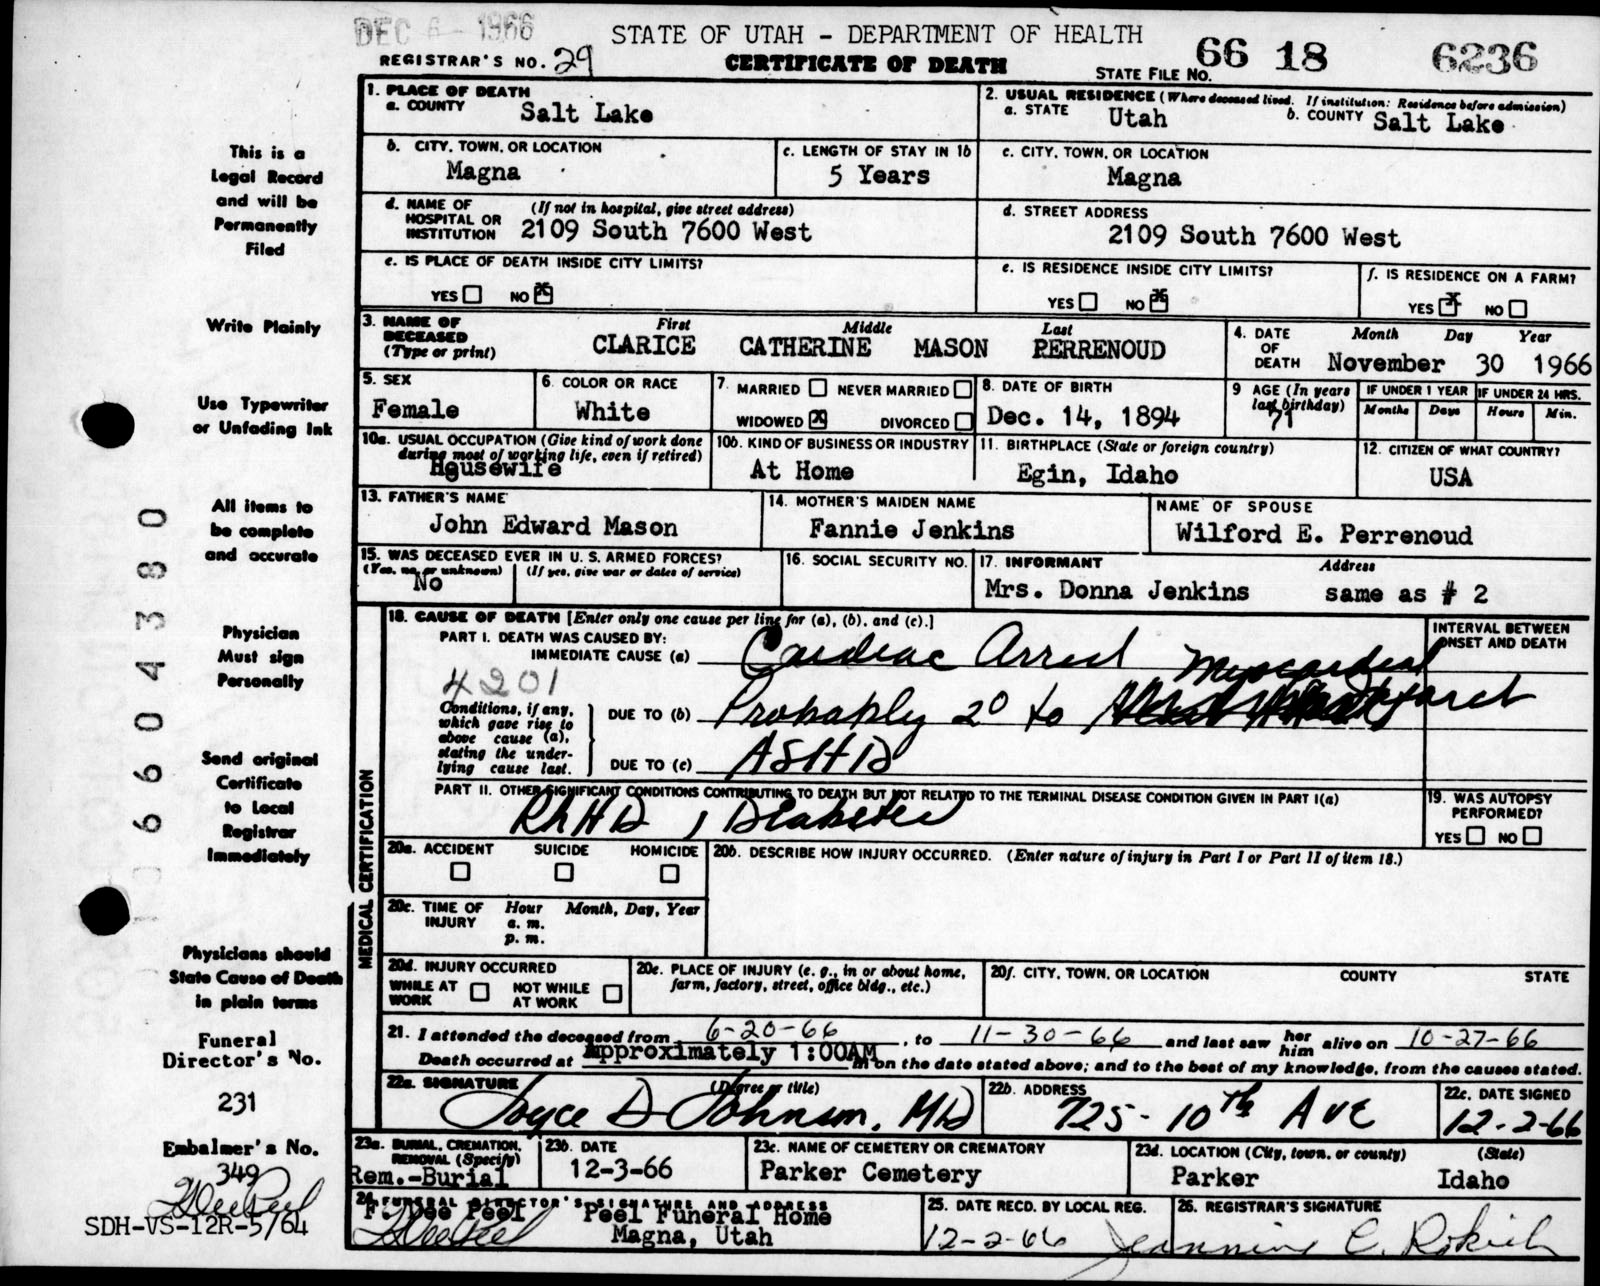 DEC 6 - 1966
STATE OF UTAH - DEPARTMENT OF HEALTH
66 18 6236
REGISTRAR'S NO. 29
CERTIFICATE OF DEATH
STATE FILE NO.
1. PLACE OF DEATH
a. COUNTY Salt Lake
2. USUAL RESIDENCE (Where deceased lived. If institution: Residence before admission)
a. STATE Utah b. COUNTY Salt Lake
b. CITY, TOWN, OR LOCATION
Magna
c. LENGTH OF STAY IN 1b
5 Years
c. CITY, TOWN, OR LOCATION
Magna
d. NAME OF HOSPITAL OR INSTITUTION (If not in hospital, give street address)
2109 South 7600 West
d. STREET ADDRESS
2109 South 7600 West
e. IS PLACE OF DEATH INSIDE CITY LIMITS?
YES NO X
e. IS RESIDENCE INSIDE CITY LIMITS?
YES NO X
f. IS RESIDENCE ON A FARM?
YES X NO
3. NAME OF DECEASED (Type or print)
First Middle Last
CLARICE CATHERINE MASON PERRENOUD
4. DATE OF DEATH
Month Day Year
November 30 1966
5. SEX
Female
6. COLOR OR RACE
White
7. MARRIED NEVER MARRIED
WIDOWED X DIVORCED
8. DATE OF BIRTH
Dec. 14, 1894
9 AGE (In years last birthday)
71
IF UNDER 1 YEAR
Months Days
IF UNDER 24 HRS.
Hours Min.
10a. USUAL OCCUPATION (Give kind of work done during most of working life, even if retired)
Housewife
10b. KIND OF BUSINESS OR INDUSTRY
At Home
11. BIRTHPLACE (State or foreign country)
Egin, Idaho
12. CITIZEN OF WHAT COUNTRY?
USA
13. FATHER'S NAME
John Edward Mason
14. MOTHER'S MAIDEN NAME
Fannie Jenkins
NAME OF SPOUSE
Wilford E. Perrenoud
15. WAS DECEASED EVER IN U. S. ARMED FORCES?
(Yes, no, or unknown) (If yes, give war or dates of service)
No
16. SOCIAL SECURITY NO.
17. INFORMANT Address
Mrs. Donna Jenkins same as # 2
MEDICAL CERTIFICATION
18. CAUSE OF DEATH [Enter only one cause per line for (a), (b), and (c).]
PART I. DEATH WAS CAUSED BY:
IMMEDIATE CAUSE (a) Cardiac Arrest
INTERVAL BETWEEN ONSET AND DEATH
4201
Conditions, if any, which gave rise to above cause (a), stating the underlying cause last.
DUE TO (b) Probably 2° to Myocardial Infarct
DUE TO (c) ASHD
PART II. OTHER SIGNIFICANT CONDITIONS CONTRIBUTING TO DEATH BUT NOT RELATED TO THE TERMINAL DISEASE CONDITION GIVEN IN PART I(a)
RhHD, Diabetes
19. WAS AUTOPSY PERFORMED?
YES NO
20a. ACCIDENT SUICIDE HOMICIDE
20b. DESCRIBE HOW INJURY OCCURRED. (Enter nature of injury in Part I or Part II of item 18.)
20c. TIME OF INJURY Hour Month, Day, Year
a. m.
p. m.
20d. INJURY OCCURRED
WHILE AT WORK NOT WHILE AT WORK
20e. PLACE OF INJURY (e. g., in or about home, farm, factory, street, office bldg., etc.)
20f. CITY, TOWN, OR LOCATION COUNTY STATE
21. I attended the deceased from 6-20-66, to 11-30-66 and last saw her him alive on 10-27-66
Death occurred at Approximately 1:00AM m on the date stated above; and to the best of my knowledge, from the causes stated.
22a. SIGNATURE (Degree or title)
Joyce D Johnson, MD
22b. ADDRESS
725 - 10th Ave
22c. DATE SIGNED
12-2-66
23a. BURIAL, CREMATION, REMOVAL (Specify)
Rem.-Burial
23b. DATE
12-3-66
23c. NAME OF CEMETERY OR CREMATORY
Parker Cemetery
23d. LOCATION (City, town, or county) (State)
Parker Idaho
24. FUNERAL DIRECTOR'S SIGNATURE AND ADDRESS
F. Dee Peel Peel Funeral Home
Magna, Utah
25. DATE RECD. BY LOCAL REG.
12-2-66
26. REGISTRAR'S SIGNATURE
Jeannine C.
This is a
Legal Record
and will be
Permanently
Filed
Write Plainly
Use Typewriter
or Unfading Ink
All items to
be complete
and accurate
Physician
Must sign
Personally
Send original
Certificate
to Local
Registrar
Immediately
Physicians should
State Cause of Death
in plain terms
Funeral
Director's No.
231
Embalmer's No.
349
SDH-VS-12R-5/64